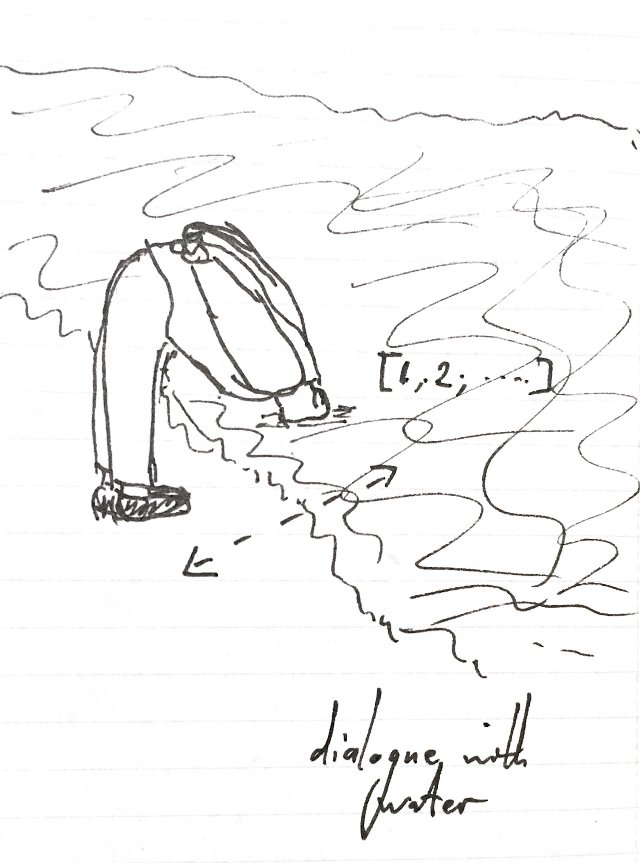 [1, 2; ....]
dialogue with
water